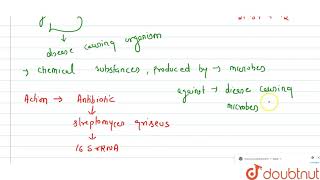 disease causing organism
→ chemical substances, produced by → microbes
Action → Antibiotic against → diease causing
microbes
streptomyces griseus
16 S rRNA
doubtnut